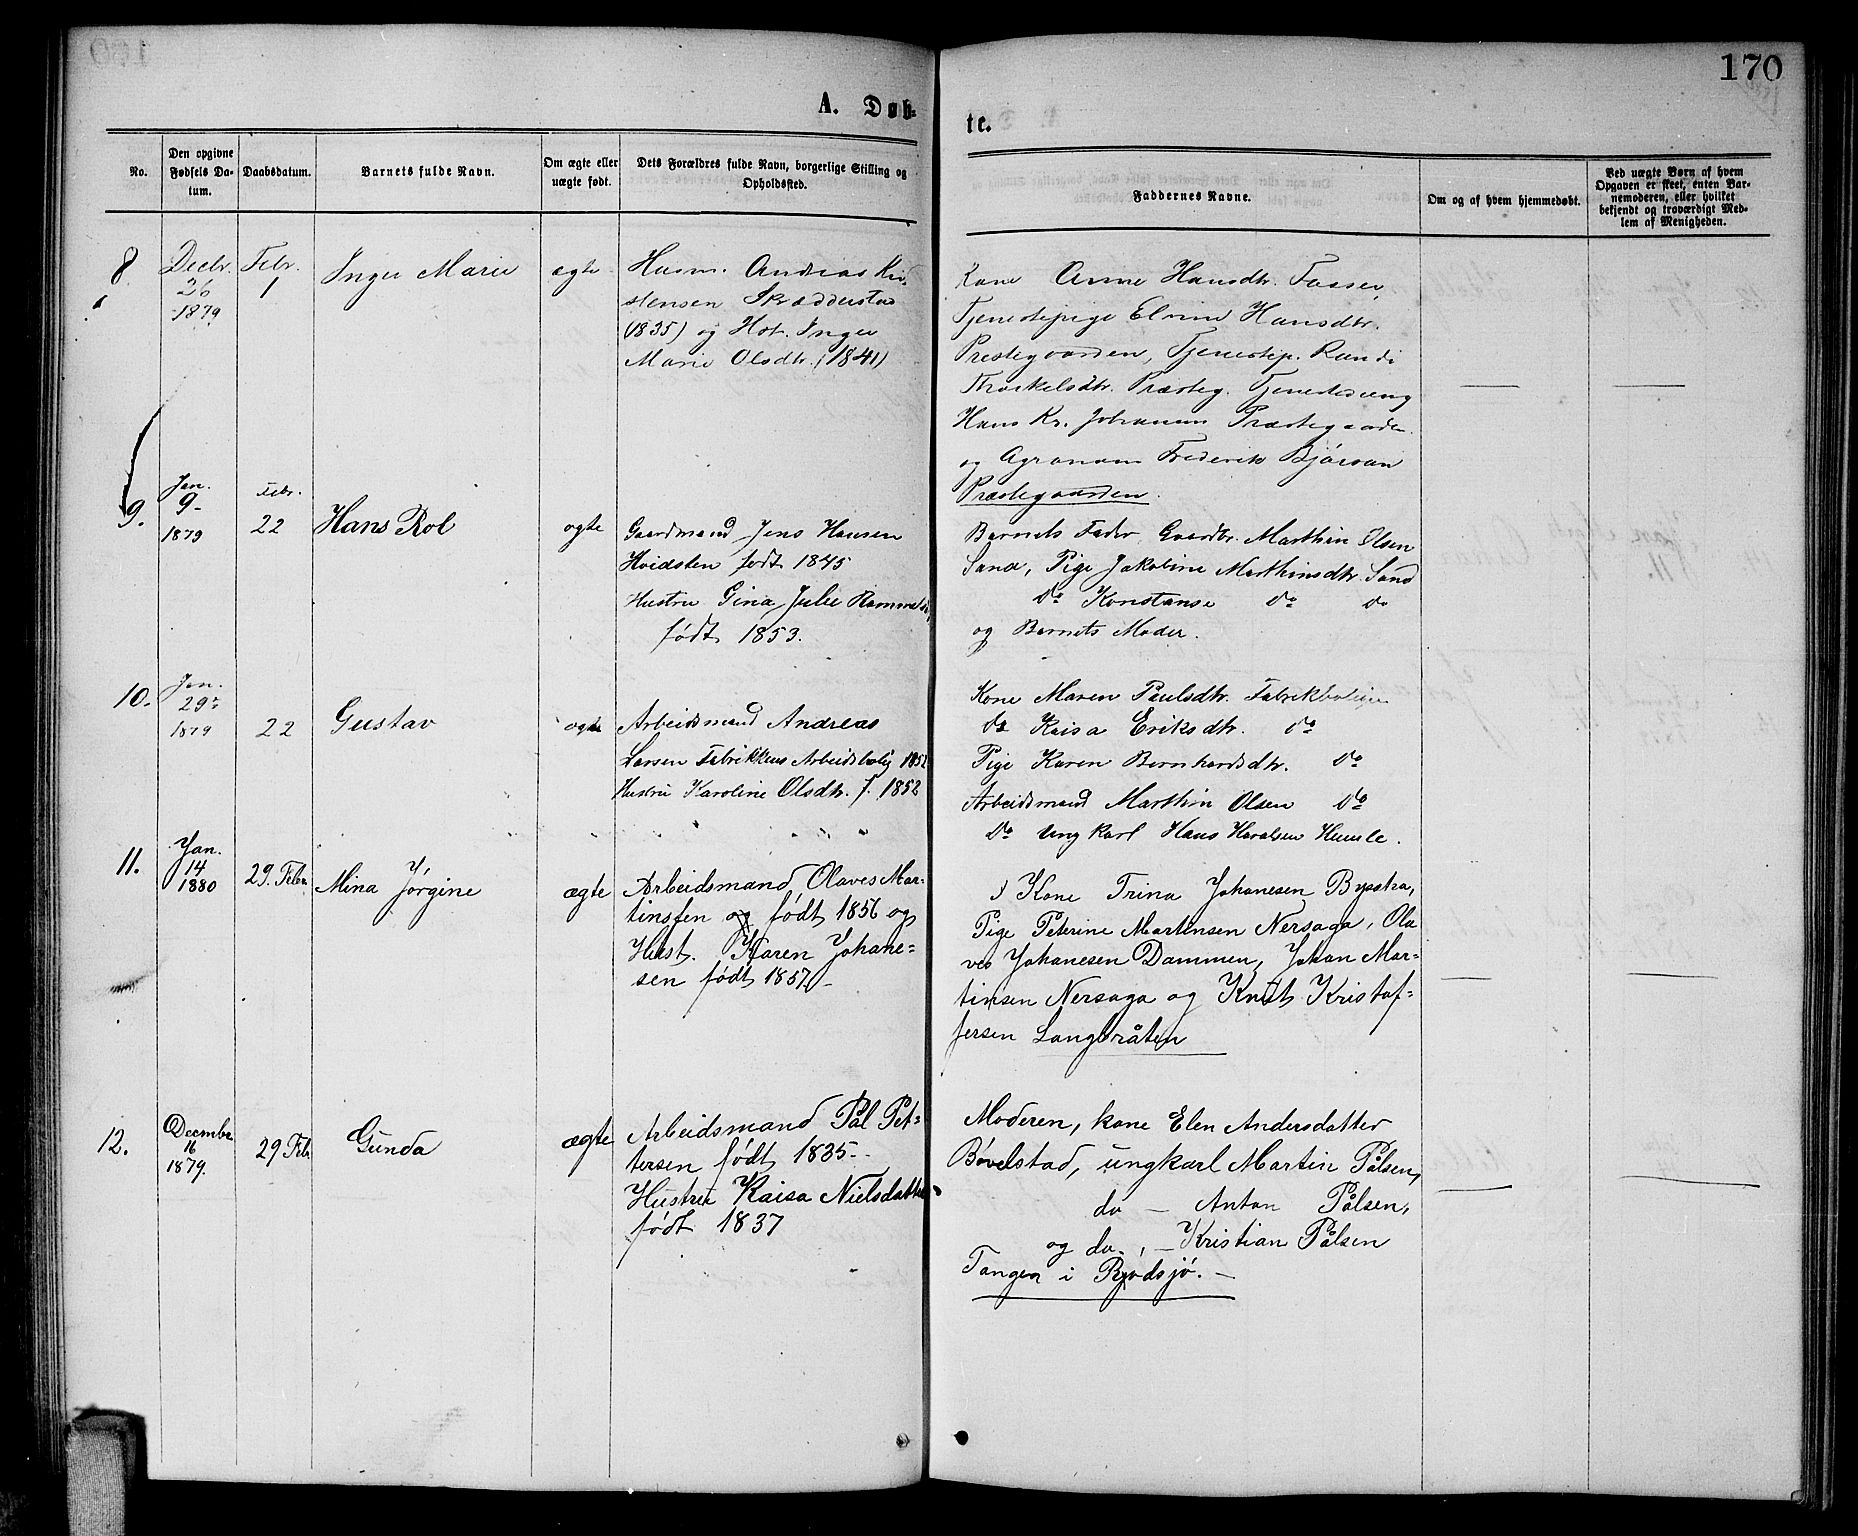 170
A. Døb-
te.
No.
Den opgivne Fødsels Da-tum.
Daabsdatum.
Barnets fulde Navn.
Om ægte eller uægte født.
Dets Forældres fulde Navn, borgerlige Stilling og Opholdssted.
Faddernes Navne.
Om og af hvem hjemmedøbt.
Ved uægte Børn af hvem Opgaven er skeet, enten Bar-nemoderen, eller hvilket bekjendt og troværdigt Med-lem af Menigheden.
8.
Decbr. 26 1879
Febr. 1
Inger Marie
ægte
Husm. Andreas Kri-
stensen Skrædderstad
(1835) og Hst. Inger
Marie Olsdtr. (1841)
Kone Anne Hansdtr. Fosser,
Tjenestepige Elvine Hansdtr.
Prestegaarden, Tjenestep. Randi
Thorkelsdtr. Præsteg. Tjenestedreng
Hans Kr. Johansen Præstegaarden
og Agronom Frederik Bjørson
Præstegaarden.
9.
Jan. 9- 1879
Febr. 22
Hans Rol
ogte
Gaardmand Jens Hansen
Hvidsten født 1845
Hustru Gina Julie
født 1853.
Barnets Fader, Gaardbr. Marthin Olsen
Sand, Pige Jakobine Marthinsdtr. Sand
do Konstanse do do
og Barnets Moder.
10.
Jan. 29 1879
22
Gustav
ogte
Arbeidsmand Andreas
Larsen Fabrikkens Arbeidsbolig 1852
Hustru Karoline Olsdtr. f. 1852
Kone Maren Paulsdtr. Fabrikboligen
do Kaisa Eriksdtr. do
Pige Karen Bernhardsdtr. do
Arbeidsmand Marthin Olsen do
do Ungkarl Hans Haralsen Humle.
11.
Jan. 14 1880
29. Febr.
Mina Jørgine
ægte
Arbeidsmand Olaves Mar-
tinsen og født 1856 og
Hust. Karen Johane-
sen født 1857
Kone Trina Johanesen Bysstra,
Pige Peterine Martinsen Nersaga, Ola
ves Johanesen Dammen, Johan Mar-
tinsen Nersaga og Knut Kristof-
fersen Langbråten
12.
Decmbr. 16 1879.
29 Feb.
Gunda
ægte
Arbeidsmand Pål Pet-
tersen født 1835
Hustru Kaisa Nielsdatter
født 1837
Moderen, kone Elen Andersdatter
Bøvelstad, ungkarl Martin Pålsen,
do — Anton Pålsen,
og do. — Kristian Pålsen
Tangen i Rjødsjø.